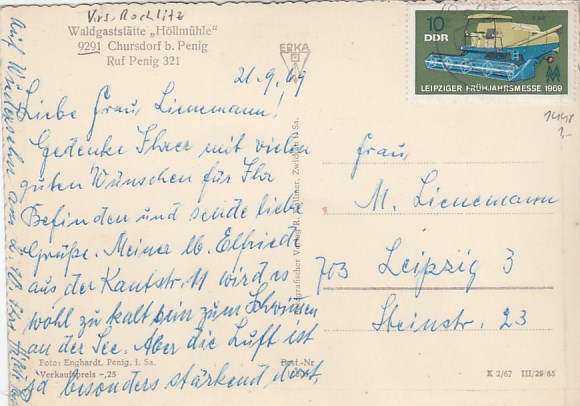 Krs. Rochlitz
Waldgaststätte „Höllmühle"
9291 Chursdorf b. Penig
Ruf Penig 321
ERKA
10
DDR
LEIPZIGER FRÜHJAHRSMESSE 1969
1448
1,-
21.9.69
Liebe Frau Lienemann!
Gedenke Ihrer mit vielen
guten Wünschen für Ihr
Befinden und sende liebe
Grüße. Meiner lb. Elfriede
aus der Kantstr. 11 wird es
wohl zu kalt sein zum Schwimmen
an der See. Aber die Luft ist
ja besonders stärkend dort.
Auf Wiedersehn am 2.10. Ihre
Frau
M. Lienemann
703 Leipzig 3
Steinstr. 23
Fotografischer Verlag R. Zwickau Sa.
Foto: Enghardt, Penig, i. Sa.
Verkaufspreis -,25
Best.-Nr.
K 2/67 III/29/85